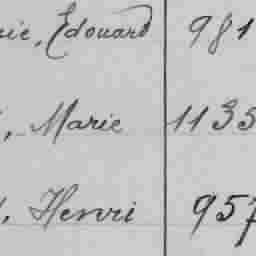 rie, Édouard 981
, Marie 1135
, Henri 957